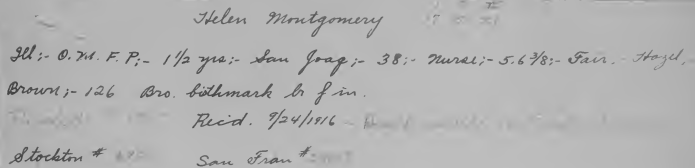 Helen Montgomery
Ill;- O. M. F. P;- 1½ yrs;- San Joaq;- 38;- Nurse;- 5.6 3/8;- Fair.- Hazel.
Brown;- 126 Bro. birthmark br f in.
Rec'd. 9/24/1916
Stockton #
San Fran #